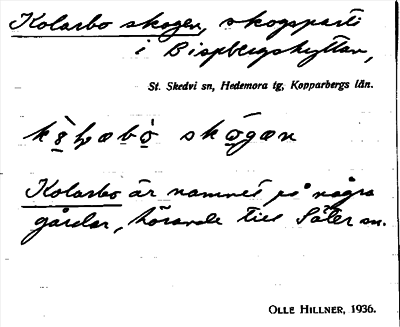 Kolarbo skogen, skogsparti
i Bispbergshyttan,
St. Skedvi sn, Hedemora tg, Kopparbergs län.
skógæn
Kolarbo är namnet på några
gårdar, hörande till Säter sn.
OLLE HILLNER, 1936.